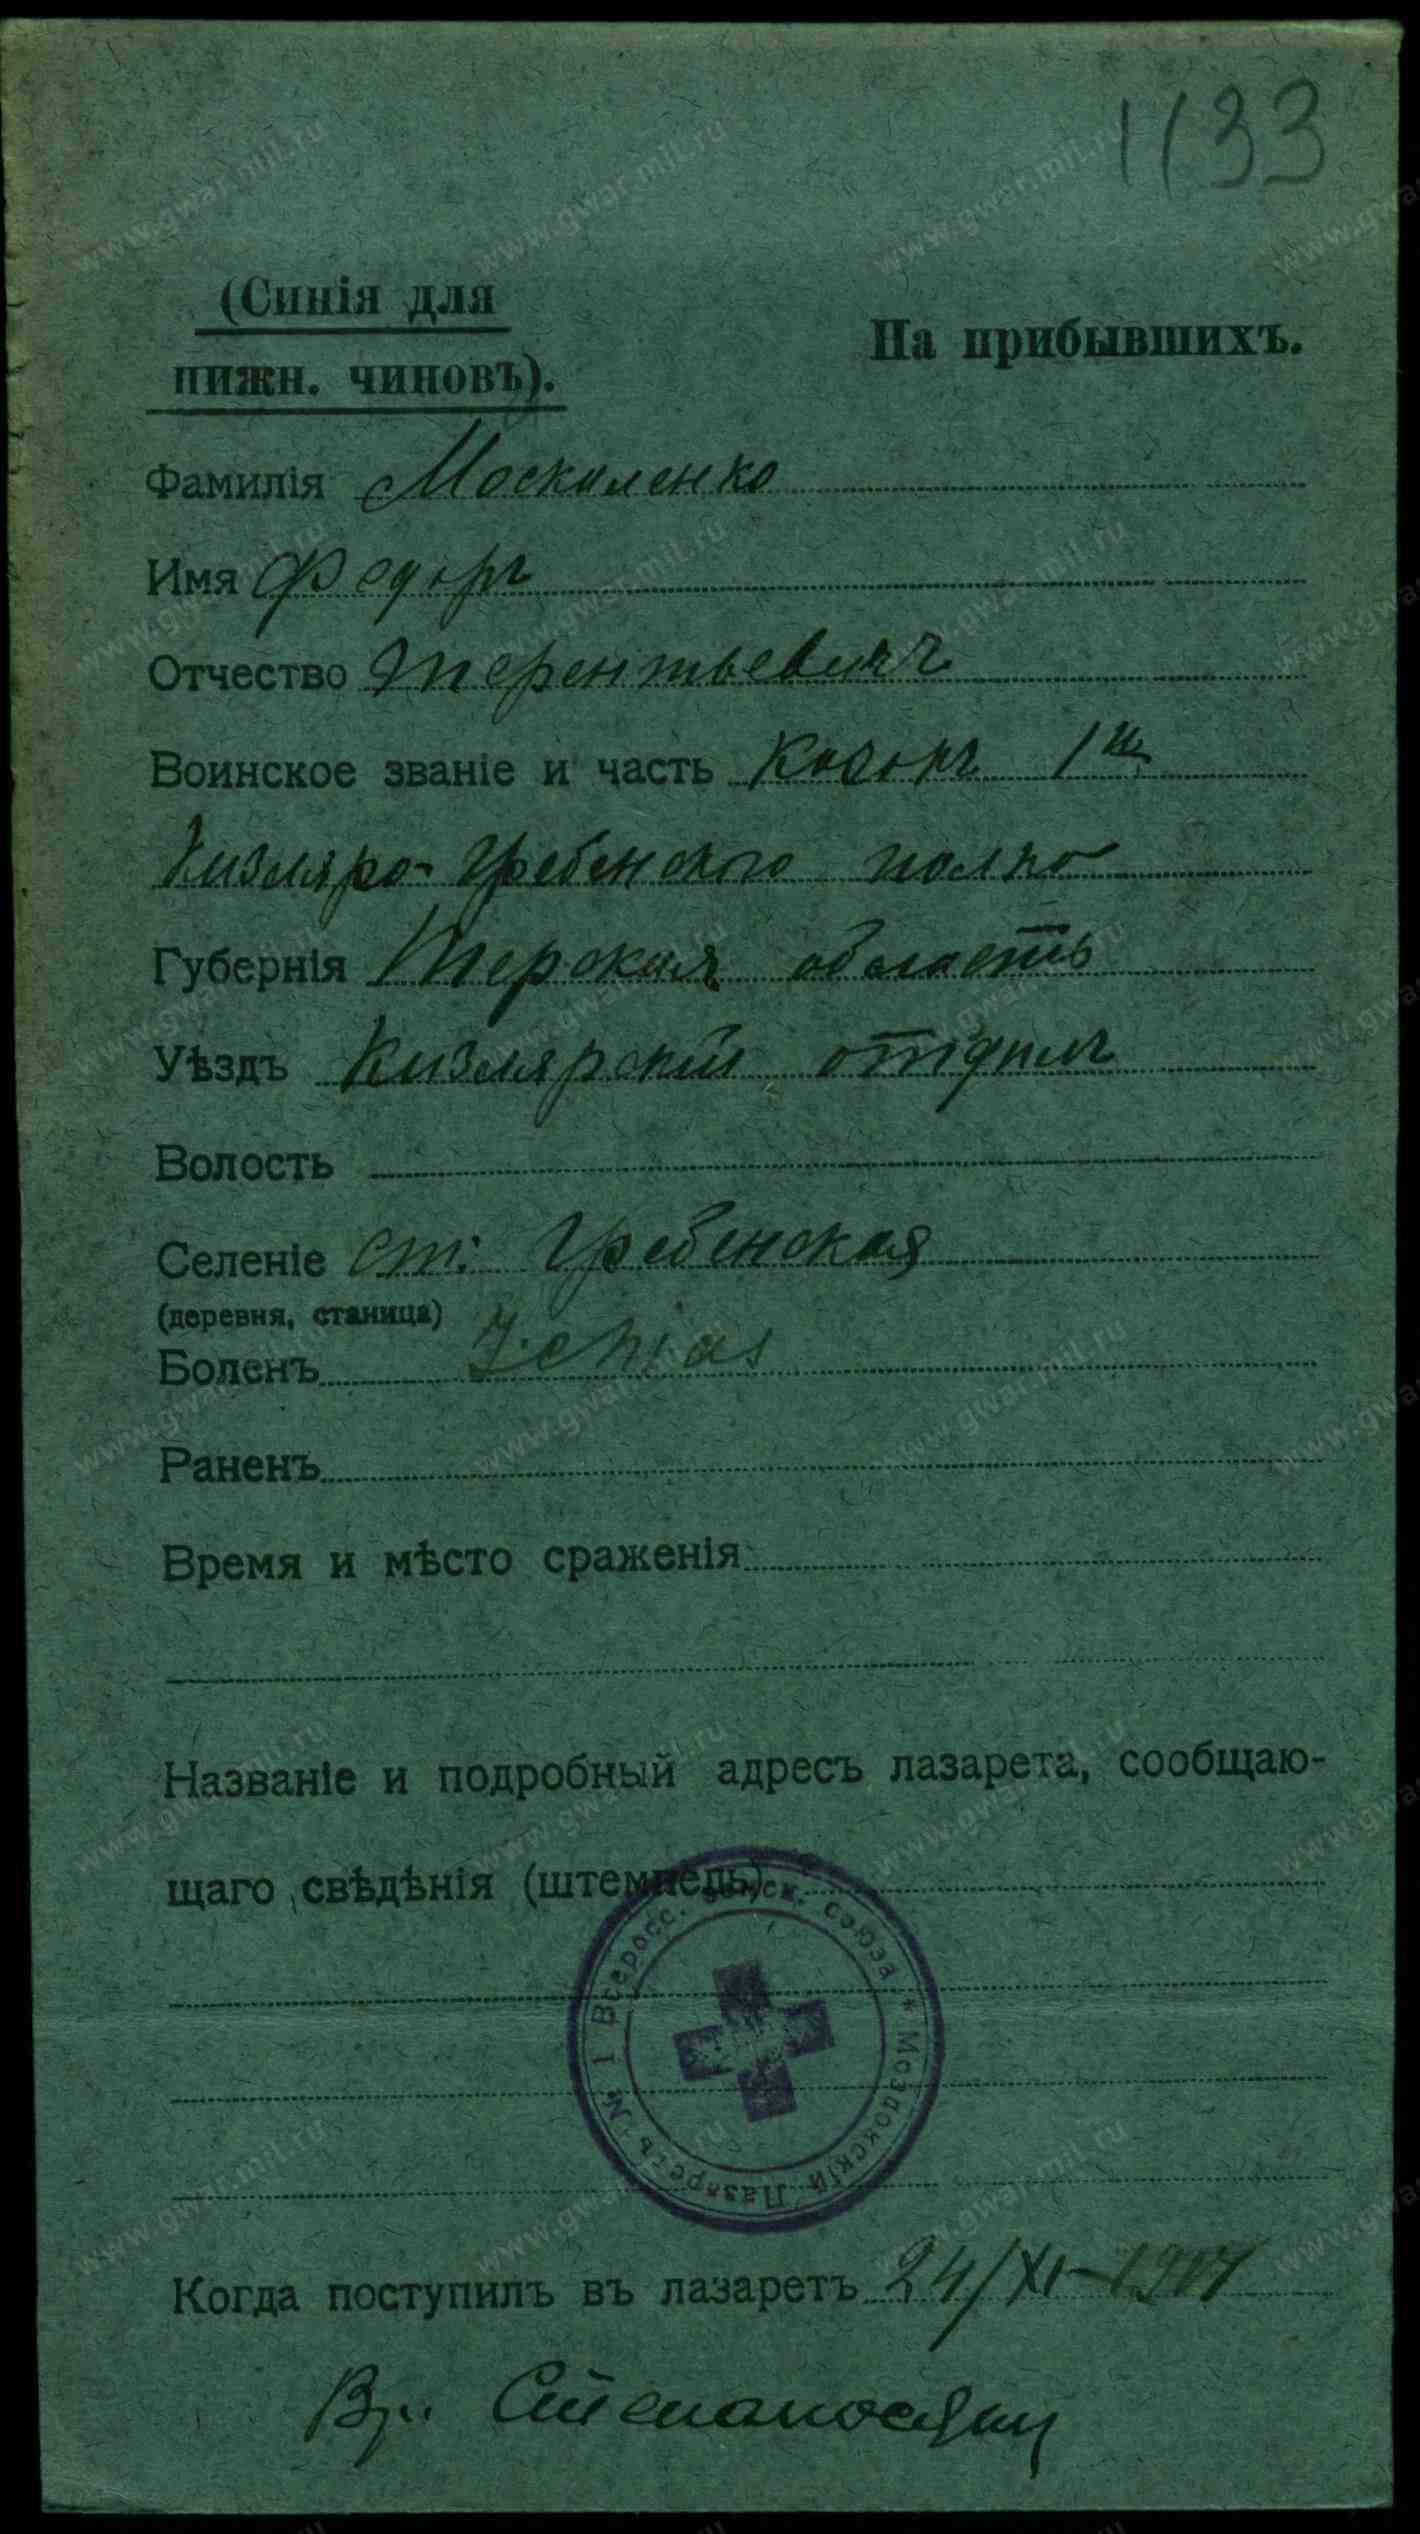 1133
(Синія для
нижн. чиновъ).
На прибывшихъ.
Фамилія Москаленко
Имя Федоръ
Отчество Терентьевичъ
Воинское званіе и часть Казакъ 1го
Кизляро-Гребенского полка
Губернія Терская область
Уѣздъ Кизлярскій отдѣлъ
Волость
Селеніе ст: Гребенская
(деревня, станица)
Боленъ Ischias
Раненъ
Время и мѣсто сраженія
Названіе и подробный адресъ лазарета, сообщаю-
щаго свѣдѣнія (штемпель)
Моздокскій Лазаретъ № 1 Всеросс. земск. союза *
Когда поступилъ въ лазаретъ 24/XI-1917
Вр.